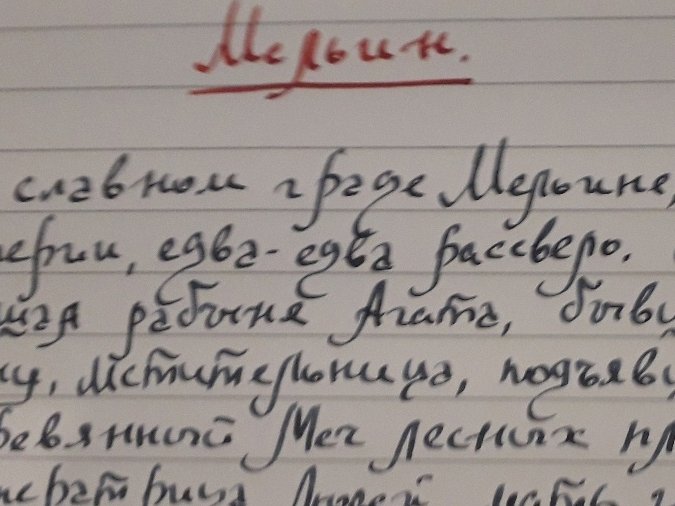 Мельин.
славном граде Мельине,
перии, едва-едва рассвело.
шая рабыня Агата, бывш
му, мстительница, подъяв
ревянный Меч лесных пл
ператрица Людей